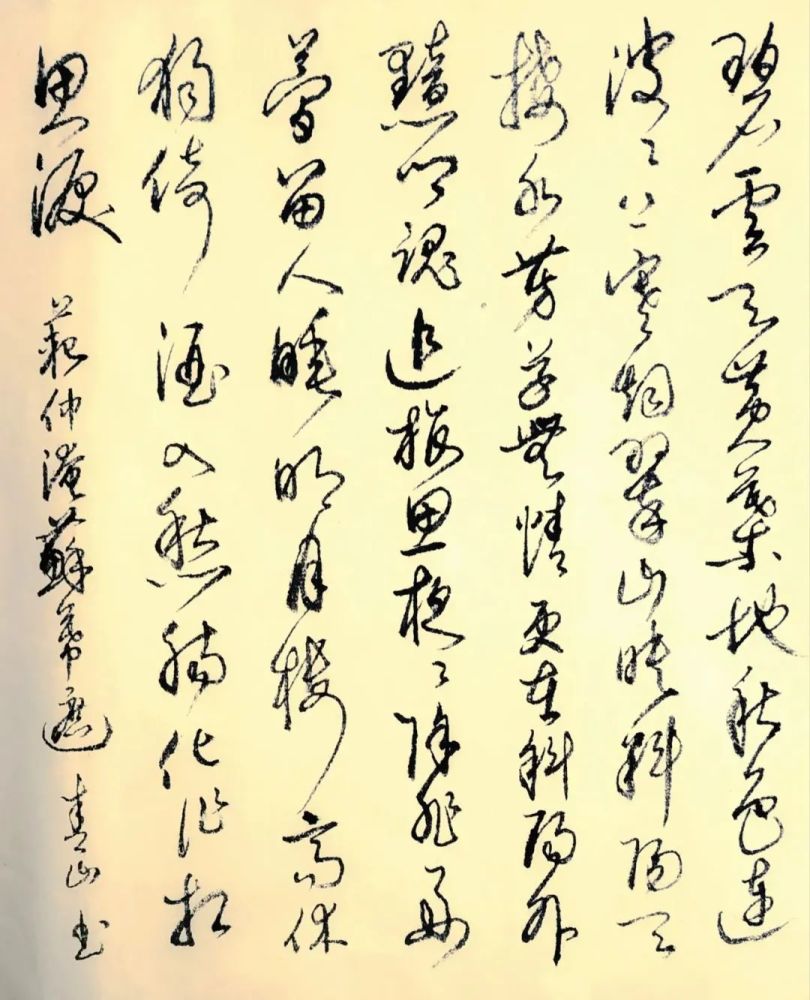 碧雲天黄葉地秋色連
波〻上寒烟翠山映斜陽天
接水芳草無情更在斜陽外
黯鄉魂追旅思夜〻除非好
夢留人睡明月樓高休
獨倚酒入愁腸化作相
思淚 范仲淹蘇幕遮 青山书